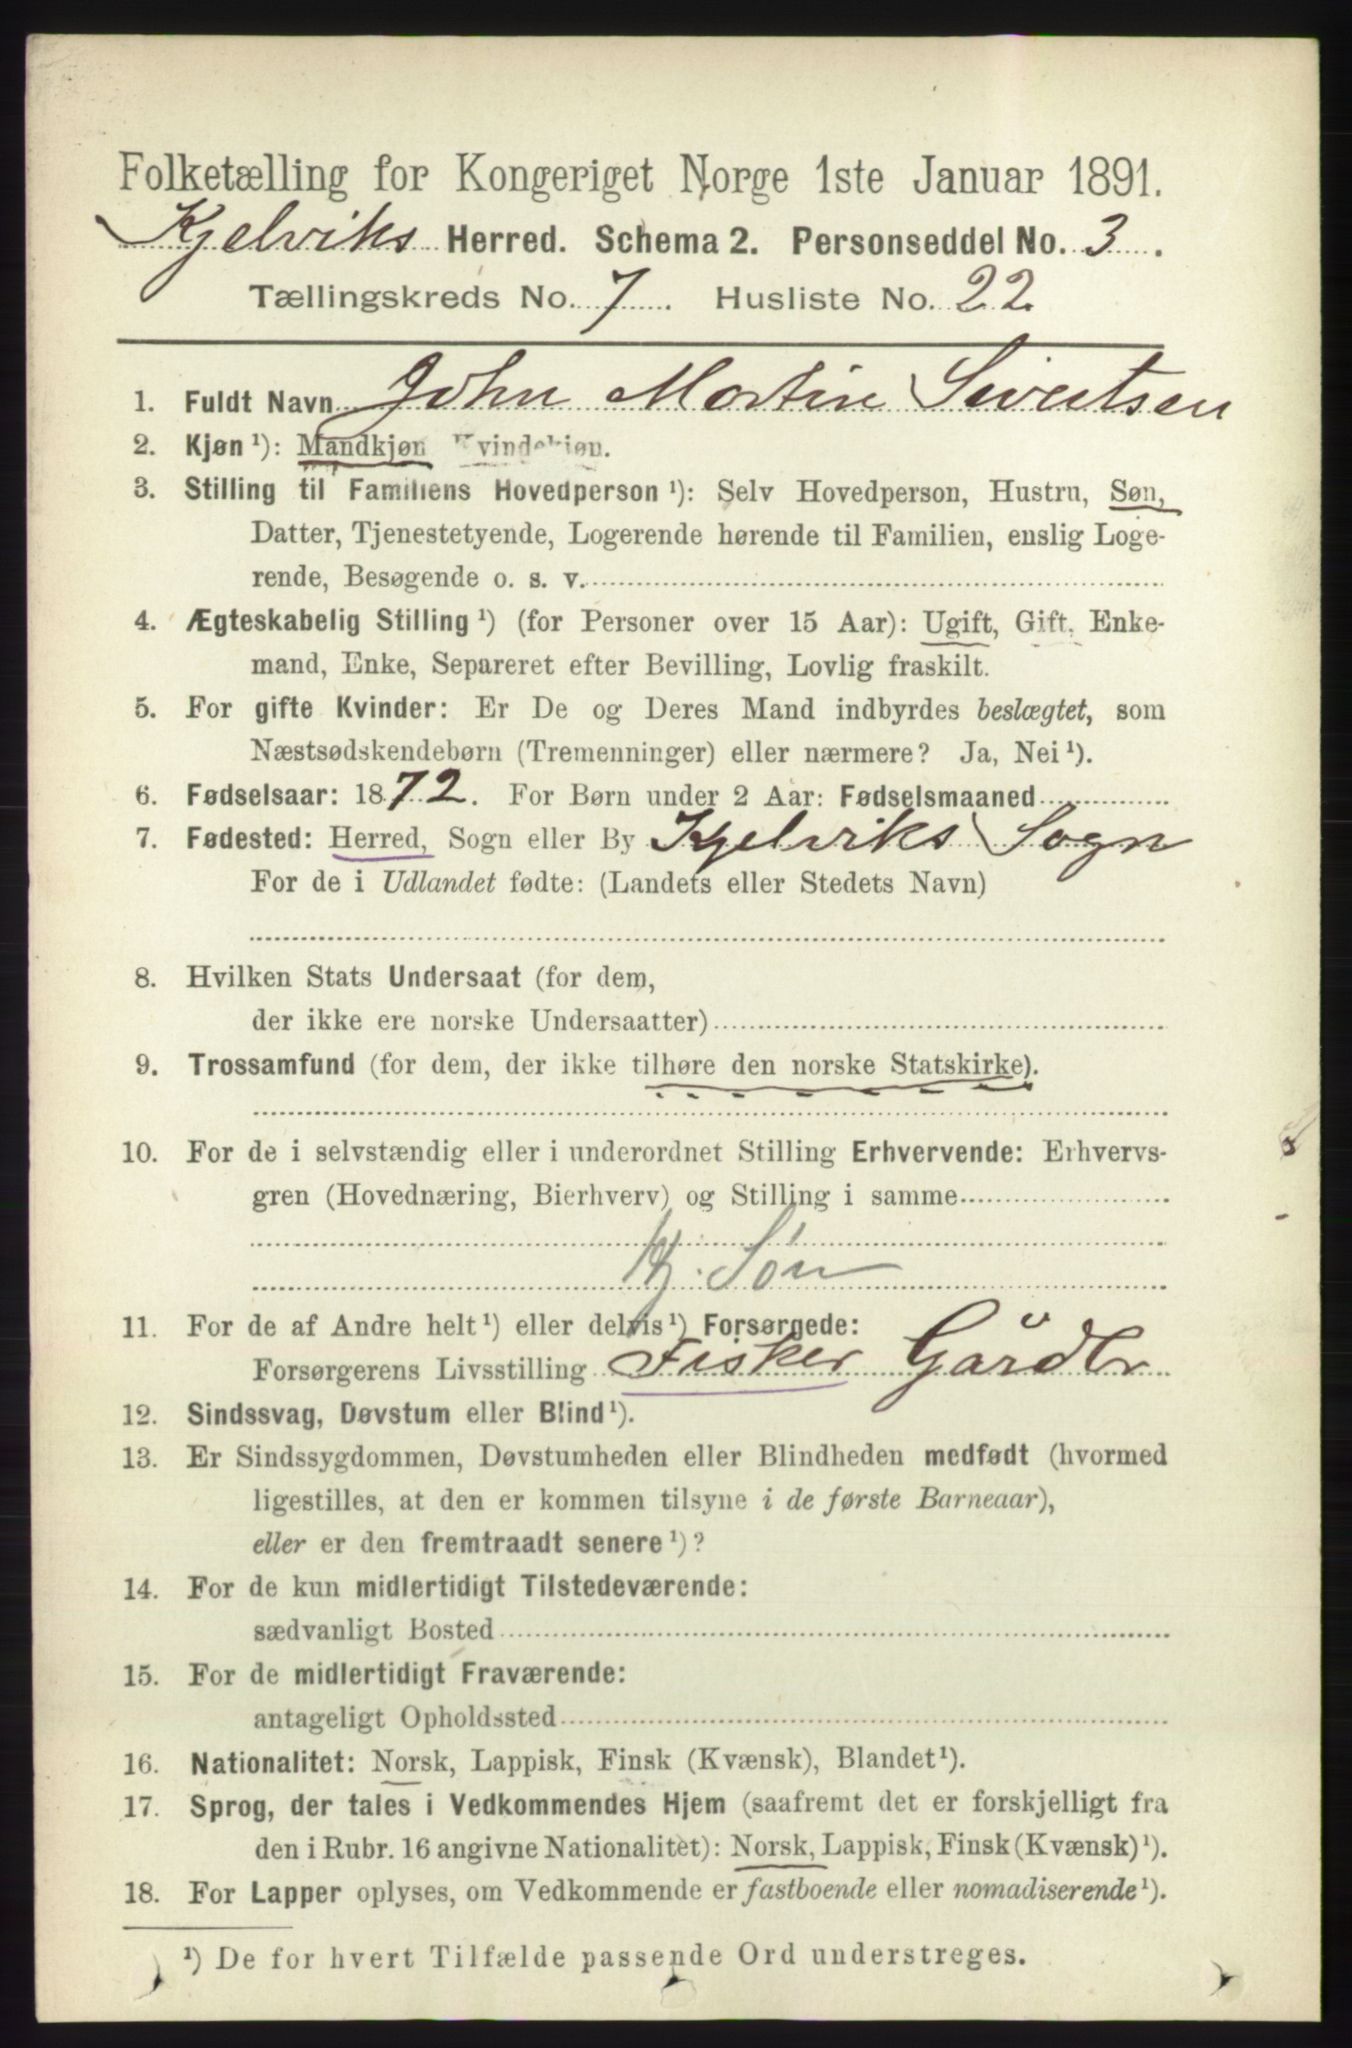 Folketælling for Kongeriget Norge 1ste Januar 1891.
Kjelviks Herred. Schema 2. Personseddel No. 3.
Tællingskreds No. 7. Husliste No. 22
1. Fuldt Navn John Martin Sivertsen
2. Kjøn ¹): Mandkjøn Kvindekjøn.
3. Stilling til Familiens Hovedperson ¹): Selv Hovedperson, Hustru, Søn,
Datter, Tjenestetyende, Logerende hørende til Familien, enslig Loge-
rende, Besøgende o. s. v.
4. Ægteskabelig Stilling ¹) (for Personer over 15 Aar): Ugift, Gift, Enke-
mand, Enke, Separeret efter Bevilling, Lovlig fraskilt.
5. For gifte Kvinder: Er De og Deres Mand indbyrdes beslægtet, som
Næstsødskendebørn (Tremenninger) eller nærmere? Ja, Nei ¹).
6. Fødselsaar: 1872. For Børn under 2 Aar: Fødselsmaaned
7. Fødested: Herred, Sogn eller By Kjelviks Sogn
For de i Udlandet fødte: (Landets eller Stedets Navn)
8. Hvilken Stats Undersaat (for dem,
der ikke ere norske Undersaatter)
9. Trossamfund (for dem, der ikke tilhøre den norske Statskirke).
10. For de i selvstændig eller i underordnet Stilling Erhvervende: Erhvervs-
gren (Hovednæring, Bierhverv) og Stilling i samme
Hj. Søn
11. For de af Andre helt ¹) eller delvis ¹) Forsørgede:
Forsørgerens Livsstilling Fisker
12. Sindssvag, Døvstum eller Blind ¹).
13. Er Sindssygdommen, Døvstumheden eller Blindheden medfødt (hvormed
ligestilles, at den er kommen tilsyne i de første Barneaar),
eller er den fremtraadt senere ¹)?
14. For de kun midlertidigt Tilstedeværende:
sædvanligt Bosted
15. For de midlertidigt Fraværende:
antageligt Opholdssted
16. Nationalitet: Norsk, Lappisk, Finsk (Kvænsk), Blandet ¹).
17. Sprog, der tales i Vedkommendes Hjem (saafremt det er forskjelligt fra
den i Rubr. 16 angivne Nationalitet): Norsk, Lappisk, Finsk (Kvænsk) ¹).
18. For Lapper oplyses, om Vedkommende er fastboende eller nomadiserende ¹).
¹) De for hvert Tilfælde passende Ord understreges.